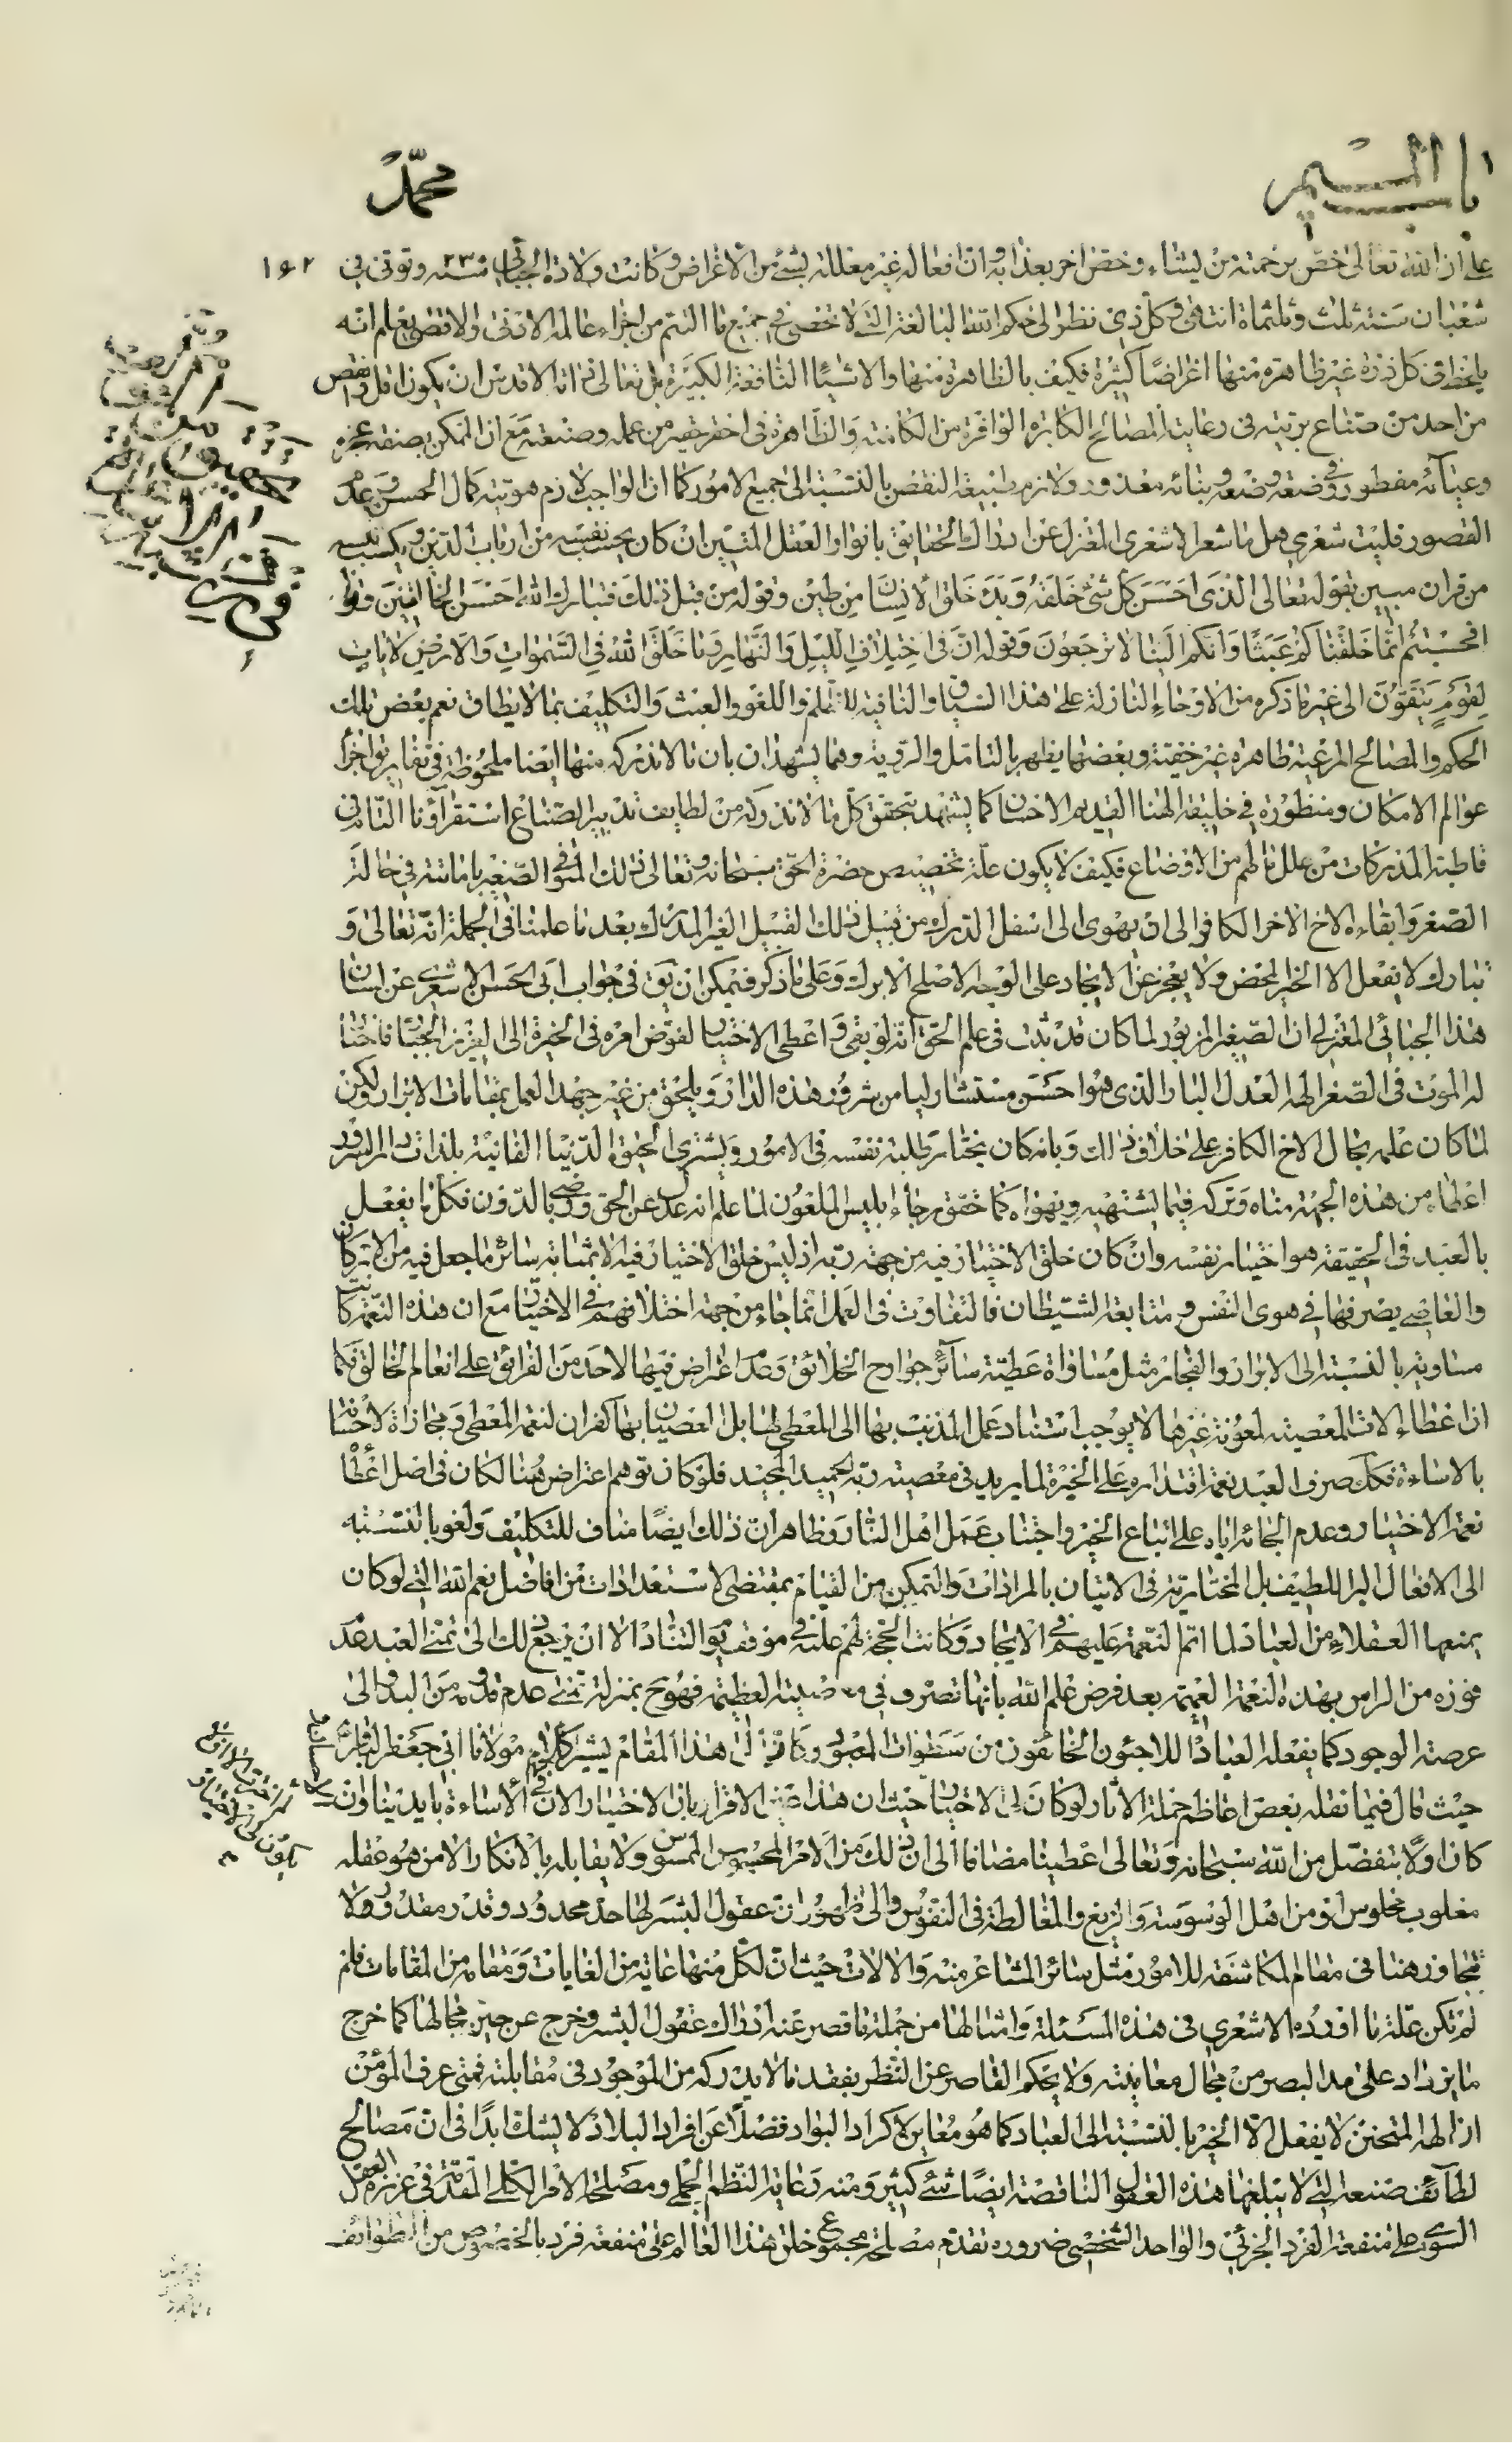 باب الميم
محمد
١٦٢
على ان الله تعالى خص برحمته من يشاء وخص اخر بعذابه وان افعاله غير معللة بشئ من الاغراض وكانت ولادة الجبائى سنة ٢٣٥ وتوفى فى
شعبان سنة ثلث وثلثماة انتهى وكل ذى نظر الى حكم الله البالغة التى لا تحصى فى جميع ما التئم من اجزاء عالمه الادنى والاقصى يعلم انه
يلحظ فى كل ذرة غير ظاهرة منها اغراضا كثيرة فكيف بالظاهرة منها والاشياء النافعة الكبيرة بل تعالى ذاته الاقدس ان يكون اقل وانقص
من احد من صناع بريته فى رعايت المصالح الكابرة الوافرة من الكامنة والظاهرة فى احقر حقير من عمله وصنعته مع ان الممكن بصنفه عجزه
وعيائه مفطور وفى وضعه وصنعه وبنائه معذور ولازم طبيعة النقص بالنسبة الى جميع الامور كما ان الواجب لازم هويته كمال الحسن وعدم
القصور فليت شعرى هل ما شعر الاشعرى المنعزل عن ادراك الحقايق بانوار العقل المتين ان كان يحسب نفسه من ارباب الدين ويكسب دينه
من قران مبين بقوله تعالى الذى احسن كل شئ خلقه وبدء خلق الانسان من طين وقوله من قبل ذلك فتبارك الله احسن الخالقين وقوله
افحسبتم انما خلقناكم عبثا وانكم الينا لا ترجعون وقوله ان فى اختلاف الليل والنهار وما خلق الله فى السموات والارض لايات
لقوم يتقون الى غير ما ذكره من الاوحاء النازلة على هذا السياق والنافية للظلم واللغو والعبث والتكليف بما لا يطاق نعم بعض تلك
الحكم والمصالح المرعية ظاهرة غير خفية وبعضها يظهر بالتامل والروية وهما يشهدان بان ما لا ندركه منها ايضا ملحوظة فى تقارير اجزاء
عوالم الامكان ومنظورة فى خليقة الهنا القديم الاحسان كما يشهد بتحقق كل ما لا ندركه من لطايف تدبير الصناع استقراؤنا التام فى
قاطبة المدركات من علل ما لهم من الاوضاع فكيف لا يكون علة تخصيص حضرة الحق سبحانه وتعالى ذلك المتوفى الصغير باماتته فى حالة
الصغر وابقاءه الاخ الاخر الكافر الى ان يهوى الى اسفل الدرك من قبيل ذلك القبيل الغير المدرك بعد ما علمنا فى الجملة انه تعالى و
تبارك لا يفعل الا الخير المحض ولا يعجز عن الايجاد على الوجه الاصلح الابرك وعلى ما ذكر فيمكن ان يق فى جواب ابى الحسن الاشعرى عن لسان
هذا الجبائى المعتزلى ان الصغير المزبور لما كان قد ثبت فى علم الحق انه لو بقى واعطى الاختيار لفوض امره فى الخيرة الى العزيز الجبار فاختار
له الموت فى الصغر الهه العدل البار الذى هو احسن مستشار ليامن شرور هذه الدار ويلحق من غير جهد العمل بمقامات الابرار ولكن
لما كان علمه بحال الاخ الكافر على خلاف ذلك وبانه كان يختار طلبة نفسه فى الامور ويشترى الحيوة الدنيا الفانية بلذات دار السرور
اعطاه من هذه الجهة مناه وتركه فيما يشتهيه ويهواه كما حقق رجاء ابليس الملعون لما علم انه عدل عن الحق ورضى بالدون فكل ما يفعل
بالعبد فى الحقيقة هو اختيار نفسه وان كان خلق الاختيار فيه من جهة ربه اذ ليس خلق الاختيار فيه الا بمثابة سائر ما جعل فيه من الاركان
والعاصى يصرفها فى هوى النفس ومتابعة الشيطان فالتفاوت فى العمل انما جاء من جهة اختلافهم فى الاختيار مع ان هذه النعمة كانت
متساوية بالنسبة الى الابرار والفجار مثل مساواة عطية سائر جوارح الخلائق وعدم اعتراض فيها لاحد من الفرائق على انعام الخالق فكما
ان اعطاء الات المعصية لمعونة غيرها لا يوجب استناد عمل المذنب بها الى المعطى لها بل العصيان بها كفران لنعمة المعطى ومجازاة لاحسانه
بالاساءة فكك صرف العبد نعمة اقتداره على الخيرة لما يريد فى معصية ربه الحميد المجيد فلو كان توهم اعتراض هنا لكان فى اصل اعطاء
نعمة الاختيار وعدم الجائه اياه على اتباع الخير واجتناب عمل اهل النار وظاهر ان ذلك ايضا مناف للتكليف ولغو بالنسبة
الى الافعال البر اللطيف بل المختارية فى الاتيان بالمرادات والتمكن من القيام بمقتضى الاستعدادات من افاضل نعم الله التى لو كان
يمنعها العقلاء من العباد لما اتم النعمة عليهم فى الايجاد وكانت الحجة لهم عليه فى موقف يوم التناد الا ان يرجع ذلك الى تمنى العبد عدم
فوزه من الراس بهذه النعمة العميمة بعد فرض علم الله بانها تصرف فى معصيته العظيمة فهو ح بمنزلة تمنى عدم قدومه من البدو الى
عرصة الوجود كما يفعله العباد اللاجئون الخائفون من سطوات المعبود والى هذا المقام يشير كلام مولانا ابى جعفر الباقر
حيث قال فيما نقله بعض اعاظم حملة الاثار لو كان لى الاختيار حيث ان هذا عين الاقرار بان الاختيار الان فى الاساءة بايدينا وان
كان اولا بتفضل من الله سبحانه وتعالى اعطينا مضافا الى ان ذلك من الامر المحسوس الملموس ولا يقابله بالانكار الا من هو عقله
مغلوب مخلوس او من اهل الوسوسة والزيغ والمغالطة فى النفوس والى ظهور ان عقول البشر لها حد محدود وقدر مقدور ولا
تتجاوز هنا فى مقام المكاشفة للامور مثل سائر المشاعر منه والالات حيث ان لكل منها غاية من الغايات ومقام من المقامات فلم
لم تكن علة ما اورده الاشعرى فى هذه المسئلة وامثالها من جملة ما قصر عنه ادراك عقول البشر وخرج عن حيز مجالها كما خرج
ما يزداد على مد البصر من مجال معاينته ولا يحكم القاصر عن النظر بفقد ما لا يدركه من الموجود فى مقابلته فمتى عرف المؤمن
ان الهه المتحنن لا يفعل الا الخير بالنسبة الى العباد كما هو معاير لاكراد البواد فضلا عن افراد البلاد لا يشك ابدا فى ان مصالح
لطائف صنعته التى لا يبلغها هذه العقول الناقصة ايضا شئ كثير ومنه رعاية النظم الجملى ومصلحة الامر الكلى المقدمة فى غريزة العقل
السوى على منفعة الفرد الجزئى والواحد الشخصى ضرورة تقدم مصلحة مجموع خلق هذا العالم على منفعة فرد بالخصوص من الطوائف